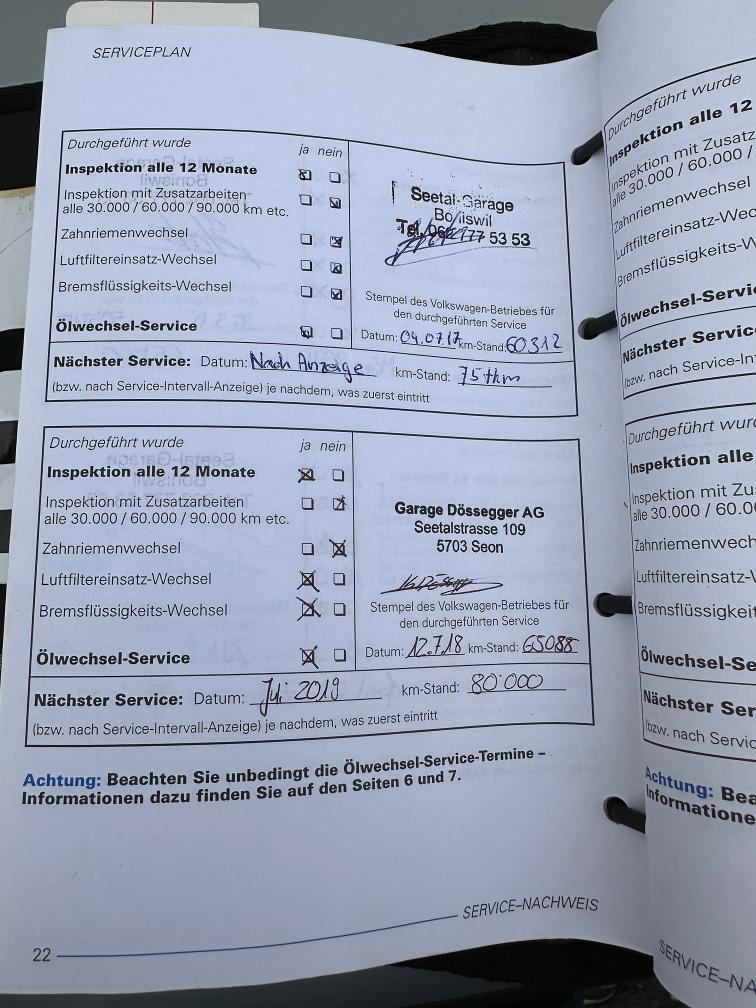 SERVICEPLAN
Durchgeführt wurde
ja nein
Inspektion alle 12 Monate
Inspektion mit Zusatzarbeiten
alle 30.000 / 60.000 / 90.000 km etc.
Zahnriemenwechsel
Luftfiltereinsatz-Wechsel
Bremsflüssigkeits-Wechsel
Ölwechsel-Service
Seetal-Garage
Boniswil
Tel. 062 777 53 53
Stempel des Volkswagen-Betriebes für
den durchgeführten Service
Datum: 04.07.17 km-Stand: 60312
Nächster Service: Datum: Nach Anzeige km-Stand: 75tkm
(bzw. nach Service-Intervall-Anzeige) je nachdem, was zuerst eintritt
Durchgeführt wurde
ja nein
Inspektion alle 12 Monate
Inspektion mit Zusatzarbeiten
alle 30.000 / 60.000 / 90.000 km etc.
Zahnriemenwechsel
Luftfiltereinsatz-Wechsel
Bremsflüssigkeits-Wechsel
Ölwechsel-Service
Garage Dössegger AG
Seetalstrasse 109
5703 Seon
Stempel des Volkswagen-Betriebes für
den durchgeführten Service
Datum: 12.7.18 km-Stand: 65088
Nächster Service: Datum: Juli 2019 km-Stand: 80'000
(bzw. nach Service-Intervall-Anzeige) je nachdem, was zuerst eintritt
Achtung: Beachten Sie unbedingt die Ölwechsel-Service-Termine –
Informationen dazu finden Sie auf den Seiten 6 und 7.
SERVICE–NACHWEIS
22
Durchgeführt wurde
Inspektion alle 12
Inspektion mit
alle 30.000 / 60.000 /
Zahnriemenwechsel
Bremsflüssigkeits-W
Nächster Service
(bzw. nach Service-In
Durchgeführt
Inspektion alle
Inspektion mit
alle 30.000 / 60.0
Bremsflüssigkeit
Nächster
(bzw. nach
Achtung: